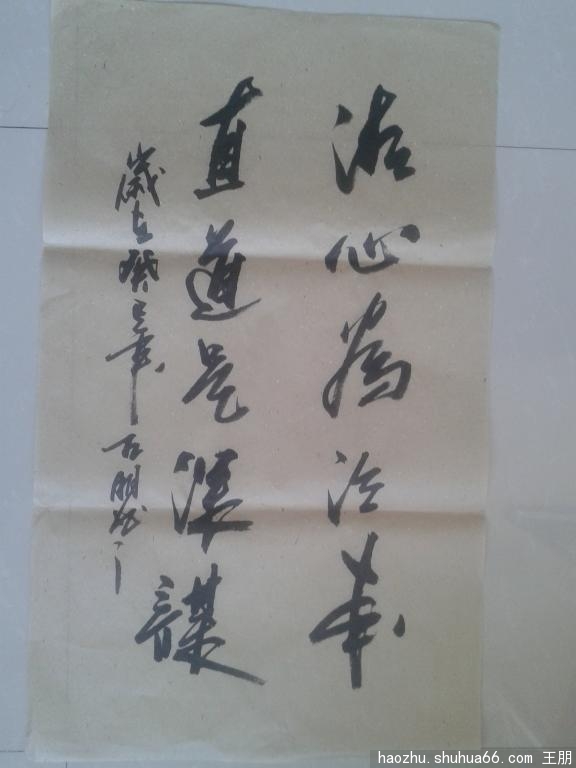 清心為治本
直道是謀
歲在癸巳年
haozhu.shuhua66.com 王朋